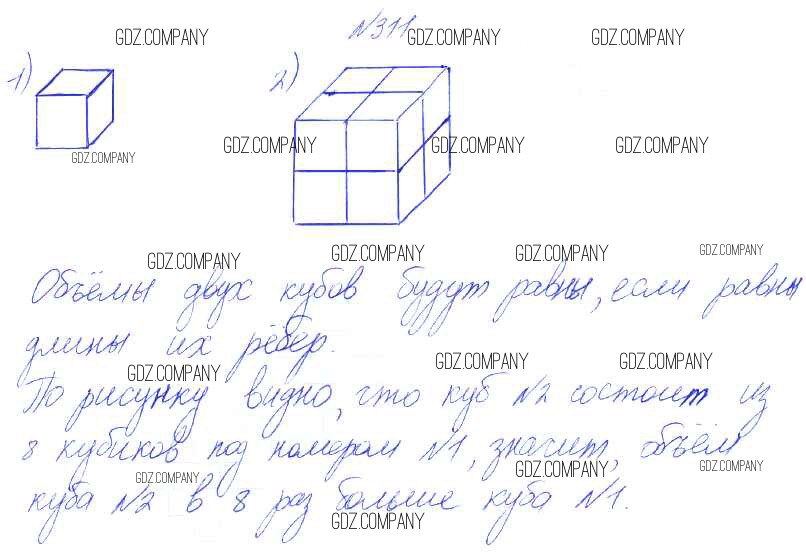 №311
GDZ.COMPANY GDZ.COMPANY GDZ.COMPANY
1) 2)
GDZ.COMPANY GDZ.COMPANY GDZ.COMPANY GDZ.COMPANY
GDZ.COMPANY GDZ.COMPANY GDZ.COMPANY GDZ.COMPANY
Объёмы двух кубов будут равны, если равны
длины их рёбер.
GDZ.COMPANY GDZ.COMPANY GDZ.COMPANY
По рисунку видно, что куб №2 состоит из
8 кубиков под номером №1, значит, объём
GDZ.COMPANY GDZ.COMPANY GDZ.COMPANY
куба №2 в 8 раз больше куба №1.
GDZ.COMPANY